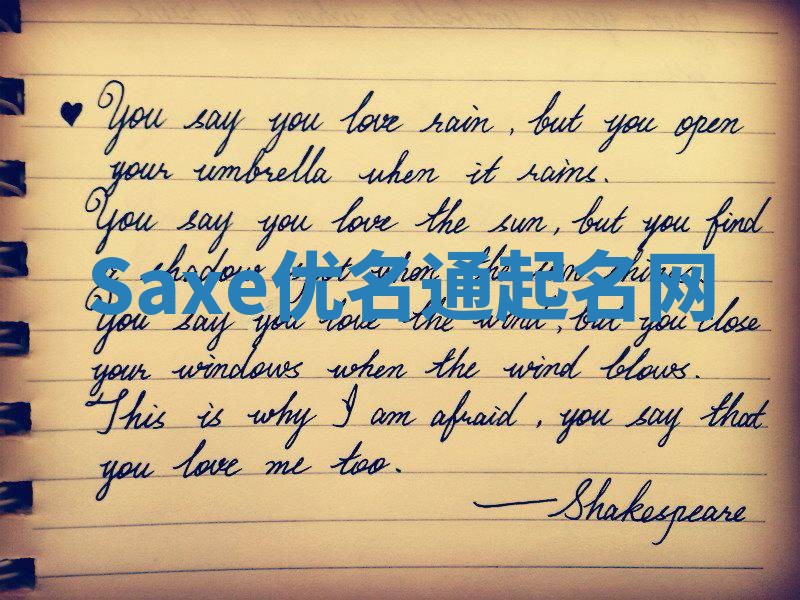 ♥ You say you love rain, but you open
your umbrella when it rains.
You say you love the sun, but you find
a shadow spot when the sun shines.
Saxe优名通起名网
You say you love the wind, but you close
your windows when the wind blows.
This is why I am afraid, you say that
you love me too.
—Shakespeare